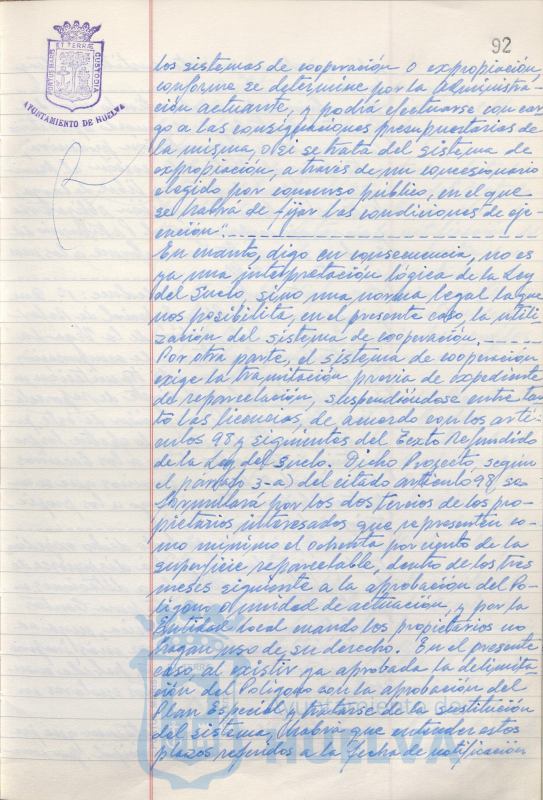 92
PORTUS MARIS
ET TERRAE
CUSTODIA
AYUNTAMIENTO DE HUELVA
los sistemas de cooperación o expropiación,
conforme se determine por la Administra-
ción actuante, y podrá efectuarse con car-
go a las consignaciones presupuestarias de
la misma, o si se trata del sistema de
expropiación, a través de un concesionario
elegido por concurso público, en el que
se habrá de fijar las condiciones de eje-
cución".
En cuanto, digo en consecuencia, no es
ya una interpretación lógica de la Ley
del Suelo, sino una norma legal la que
nos posibilita, en el presente caso, la utili-
zación del sistema de cooperación.
Por otra parte, el sistema de cooperación
exige la tramitación previa de expediente
de reparcelación, suspendiéndose entre tan-
to las licencias, de acuerdo con los artí-
culos 98 y siguientes del Texto Refundido
de la Ley del Suelo. Dicho Proyecto, según
el párrafo 3-a) del citado artículo 98, se
formulará por los dos tercios de los pro-
pietarios interesados que representen co-
mo mínimo el ochenta por ciento de la
superficie reparcelable, dentro de los tres
meses siguiente a la aprobación del Po-
lígono o unidad de actuación, y por la
Entidad local cuando los propietarios no
hagan uso de su derecho. En el presente
caso, al existir ya aprobada la delimita-
ción del Polígono con la aprobación del
Plan Especial y tratarse de la sustitución
del sistema, habrá que entender estos
plazos referidos a la fecha de notificación
HUELVA